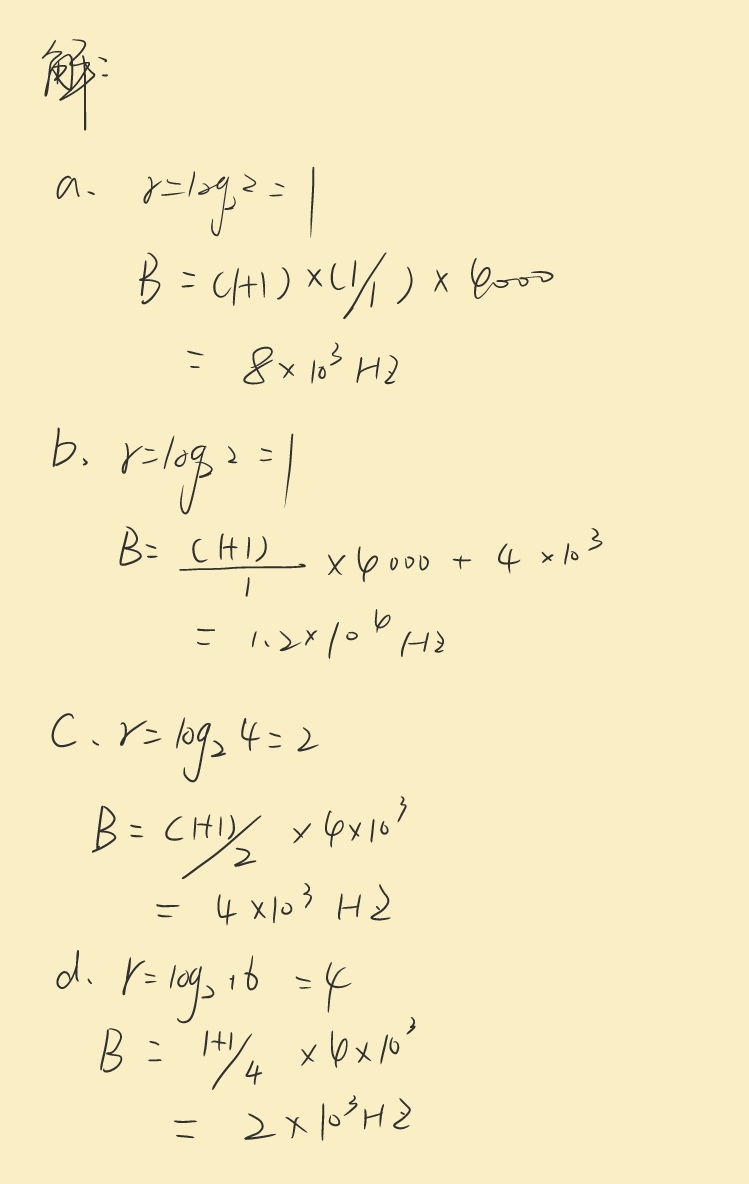 解:
a. r=log₂2=1
B=(1+1)×(1/1)×4000
= 8×10³HZ
b. r=log₂2=1
B=(1+1)/1×4000+4×10³
= 1.2×10⁴HZ
C. r=log₂4=2
B=(1+1)/2×4×10³
= 4×10³HZ
d. r=log₂16=4
B=1+1/4×4×10³
= 2×10³HZ